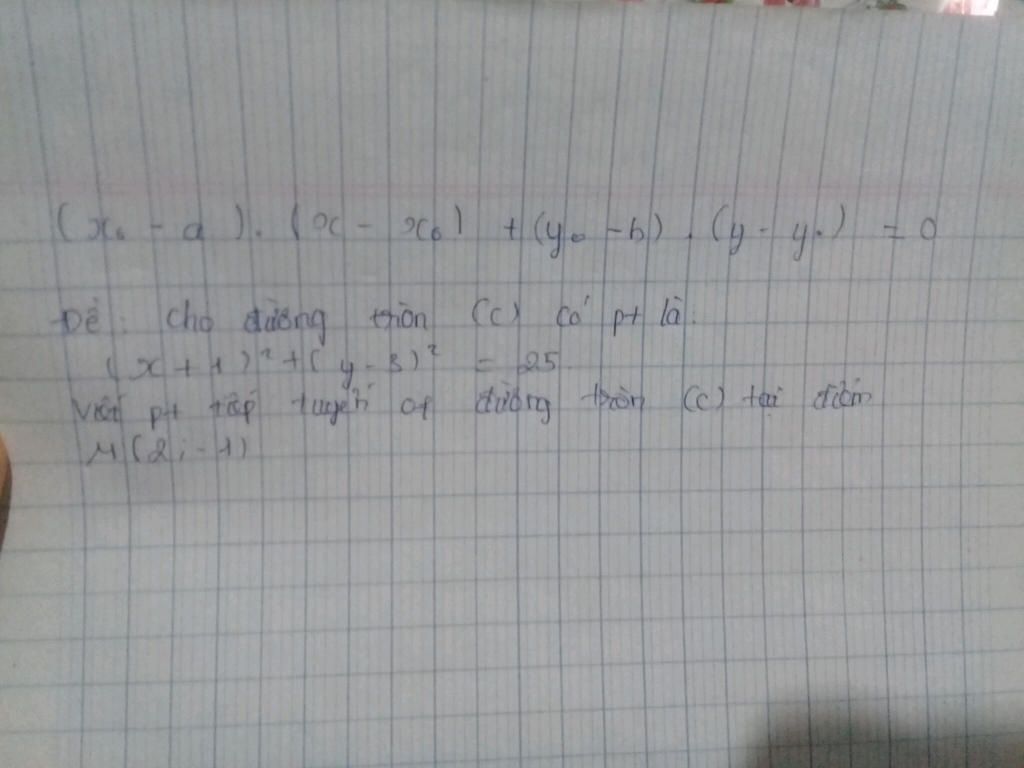 (x₀ - a). (x - x₀) + (y₀ - b). (y - y₀) = 0
Đề: Cho đường tròn (C) có pt là:
(x + 1)² + (y - 3)² = 25.
Viết pt tiếp tuyến of đường tròn (C) tại điểm
M(2; -1)